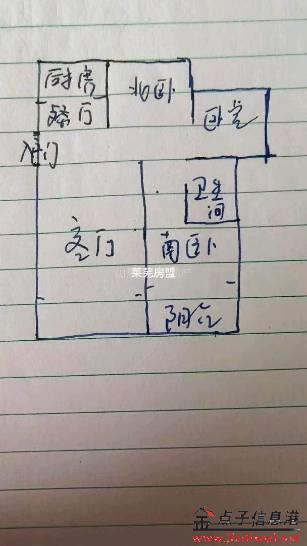 厨房
北卧
餐厅
卧室
入户门
卫生间
客厅
南卧
莱芜房盟
阳台
点子信息港